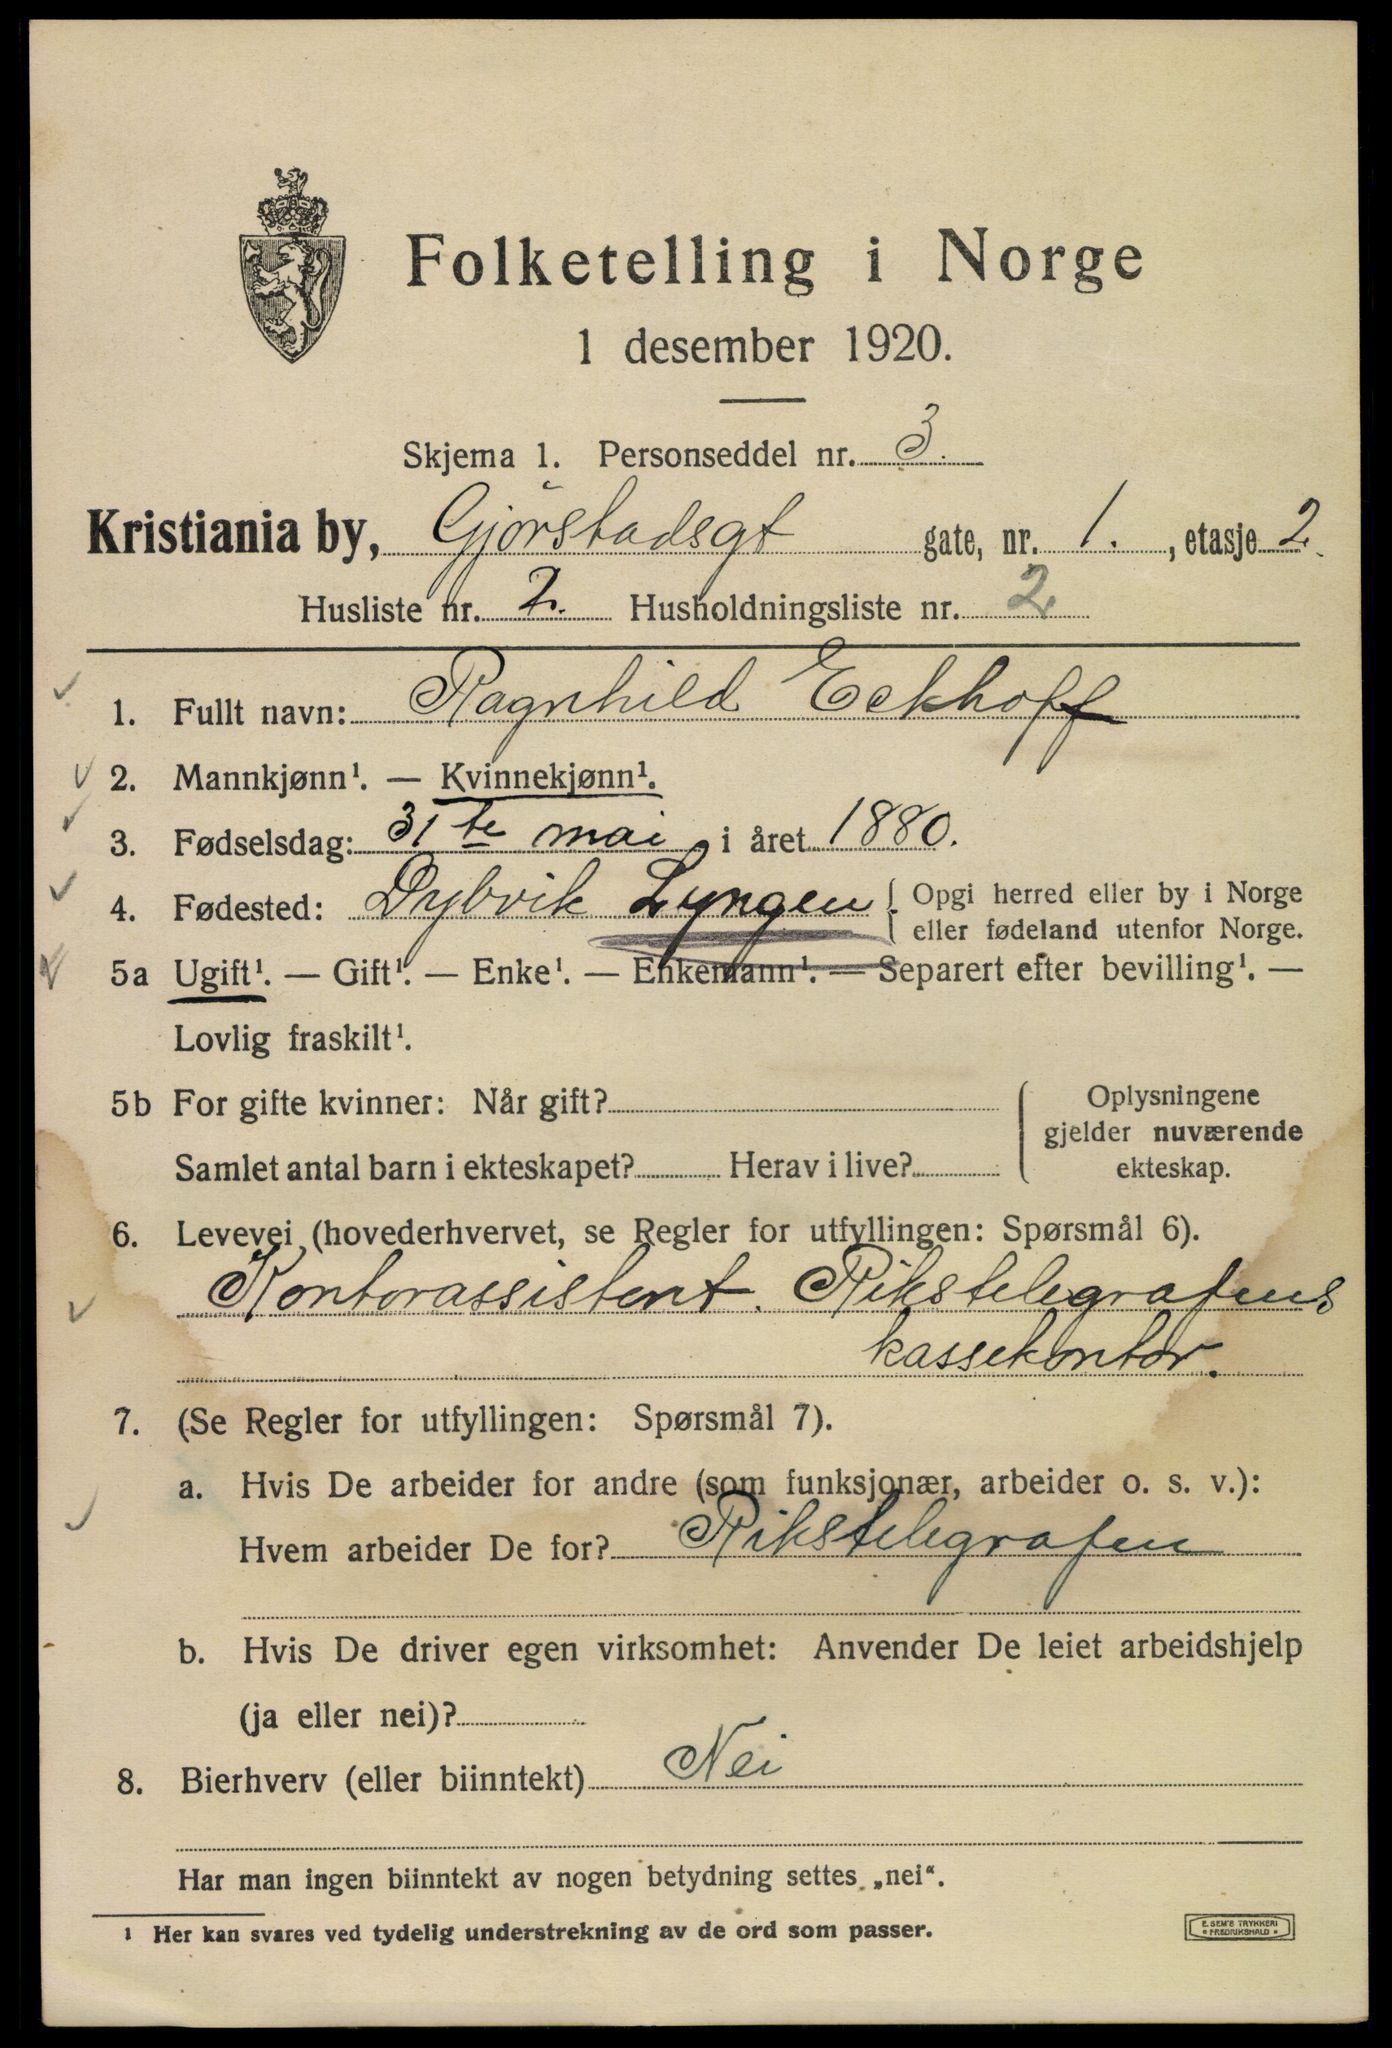 Folketelling i Norge
1 desember 1920.
Skjema 1. Personseddel nr. 3.
Kristiania by, Gjörstadsgt gate, nr. 1., etasje 2.
Husliste nr. 2. Husholdningsliste nr. 2
1. Fullt navn: Ragnhild Eckhoff
2. Mannkjønn¹. — Kvinnekjønn¹.
3. Fødselsdag: 31te mai i året 1880.
4. Fødested: Dybvik Lyngen { Opgi herred eller by i Norge
eller fødeland utenfor Norge.
5a Ugift¹. — Gift¹. — Enke¹. — Enkemann¹. — Separert efter bevilling¹. —
Lovlig fraskilt¹.
5b For gifte kvinner: Når gift? Oplysningene
gjelder nuværende
Samlet antal barn i ekteskapet? Herav i live? ekteskap.
6. Levevei (hovederhvervet, se Regler for utfyllingen: Spørsmål 6).
Kontorassistent. Rikstelegrafens
kassekontor.
7. (Se Regler for utfyllingen: Spørsmål 7).
a. Hvis De arbeider for andre (som funksjonær, arbeider o. s. v.):
Hvem arbeider De for? Rikstelegrafen
b. Hvis De driver egen virksomhet: Anvender De leiet arbeidshjelp
(ja eller nei)?
8. Bierhverv (eller biinntekt) Nei
Har man ingen biinntekt av nogen betydning settes „nei“.
¹ Her kan svares ved tydelig understrekning av de ord som passer.
E. SEM'S TRYKKERI
* FREDRIKSHALD *